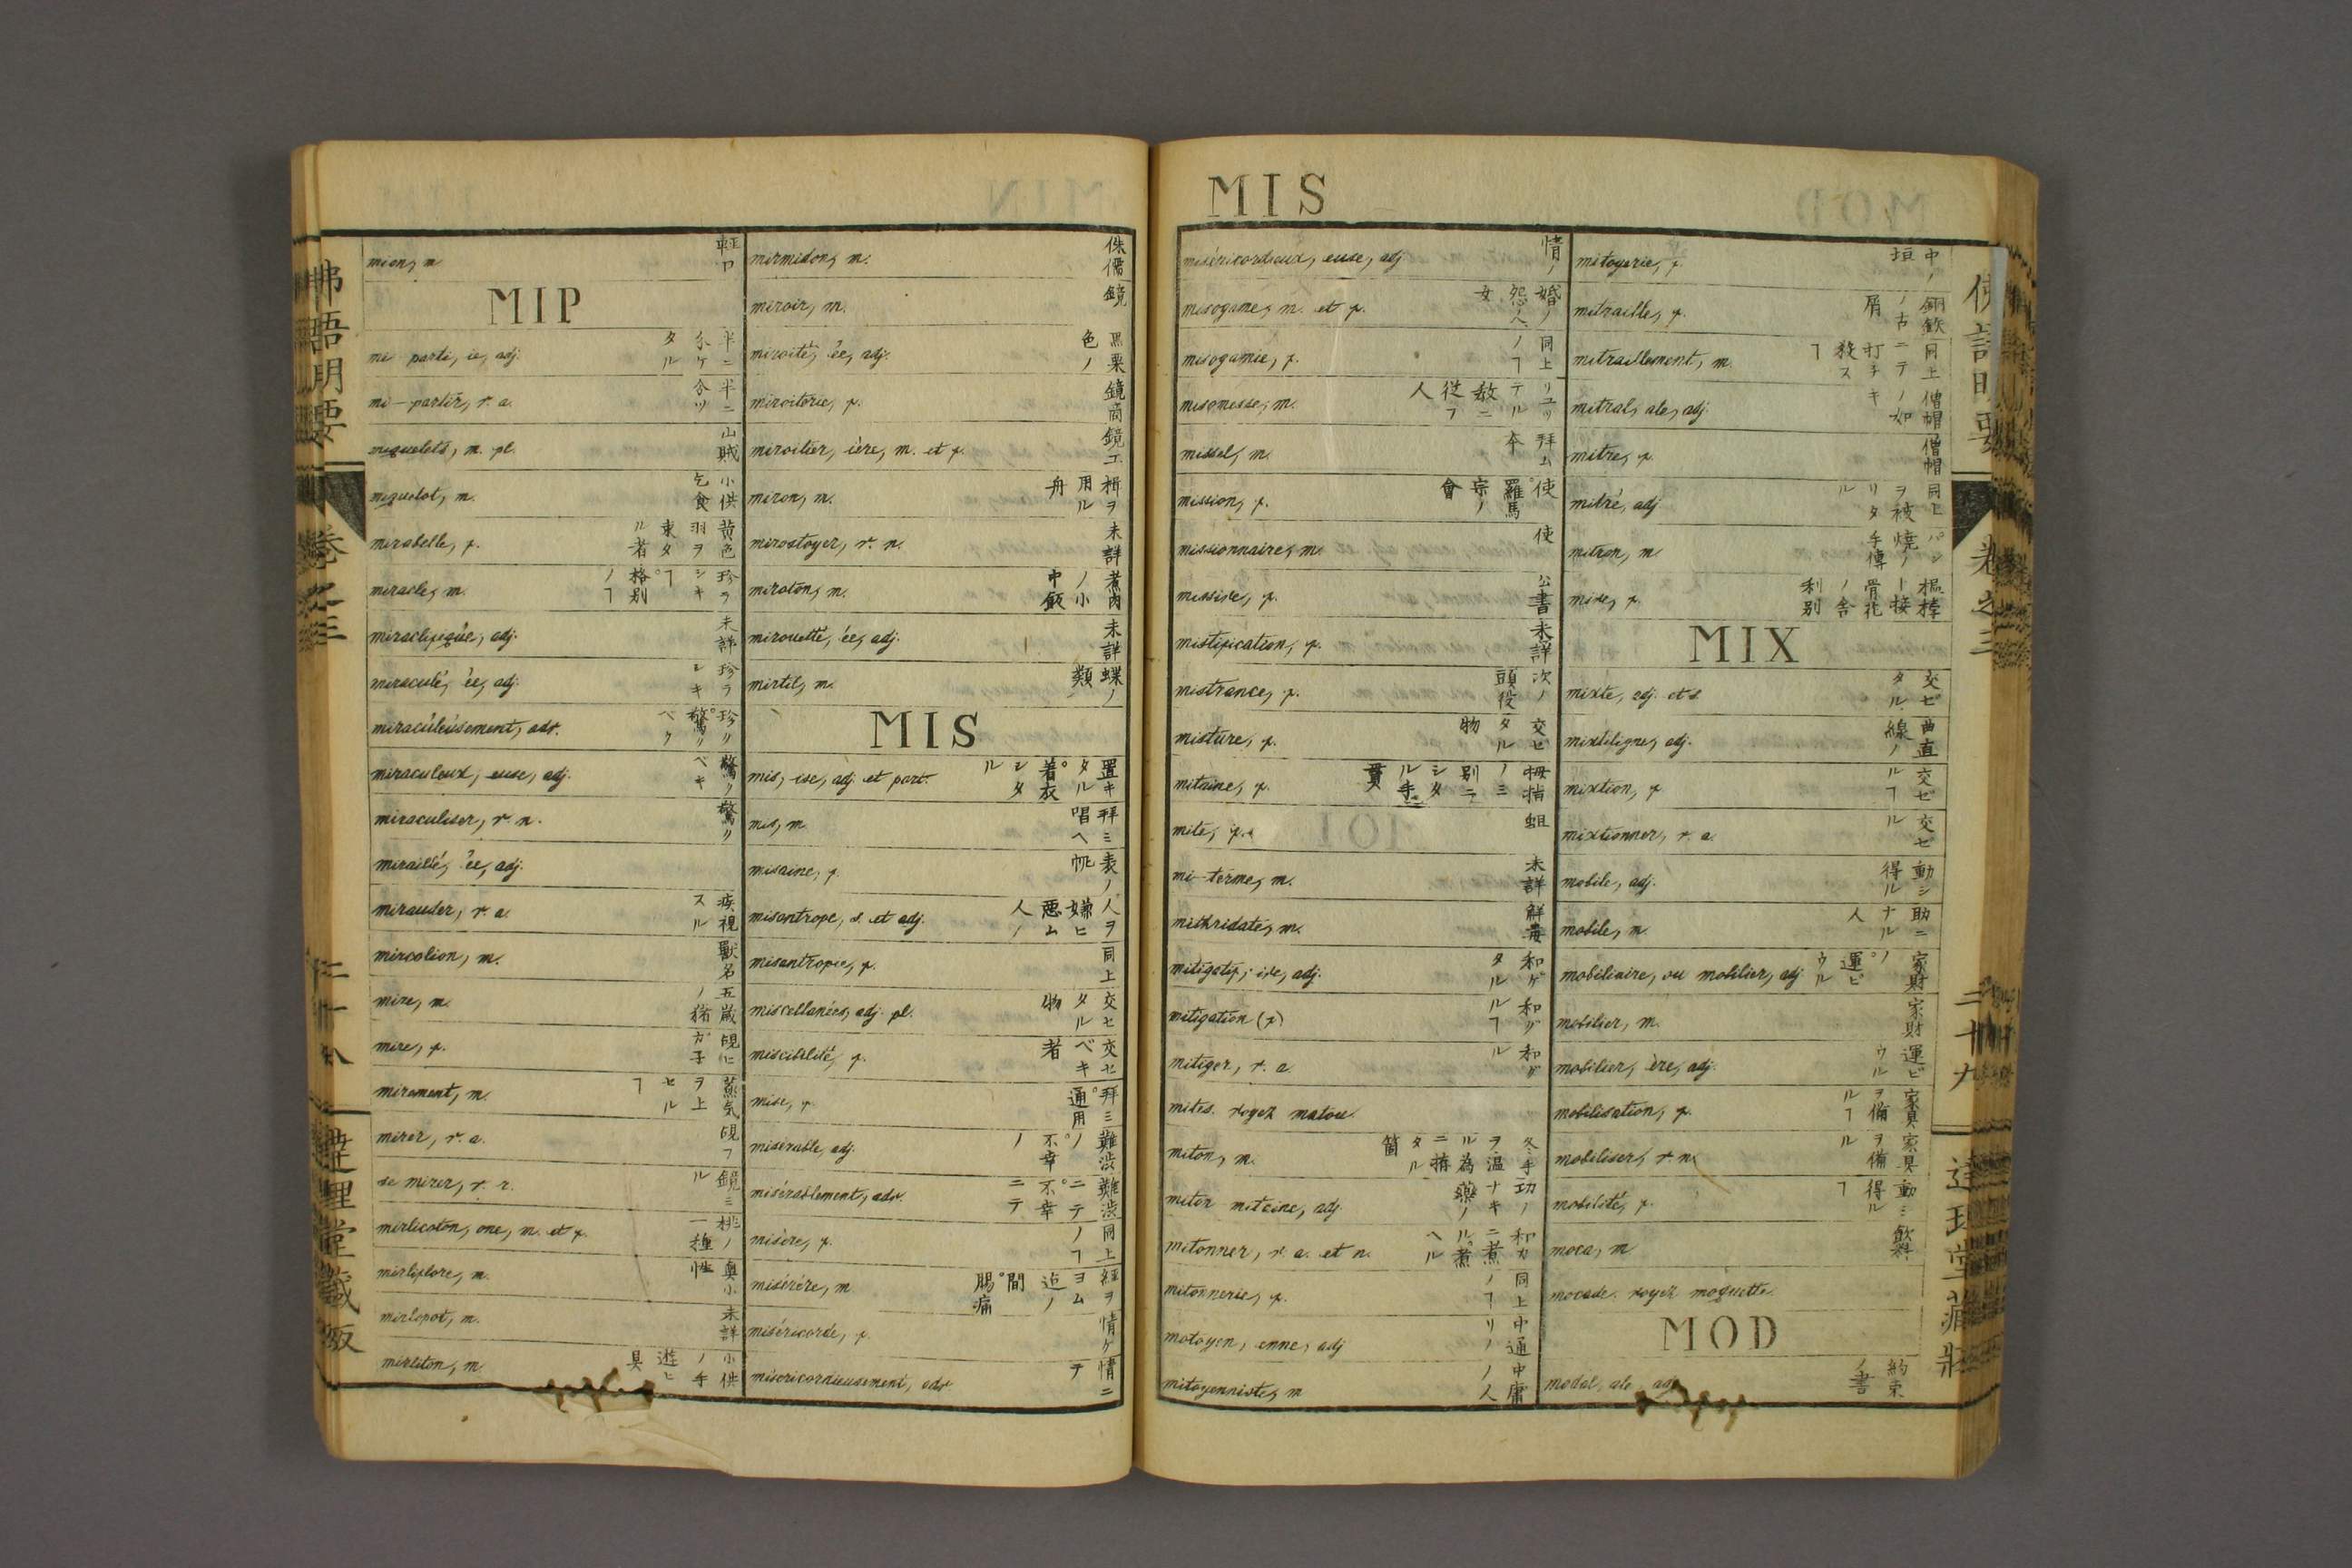 佛語明要
巻之三
達理堂蔵版
mion, m. 
MIP
mi parti, ie, adj. 半ニ分ケタル
mi-partir, v. a. 半ニ分ツ
miquelets, m. pl. 山賊
miquelot, m. 小供乞食
mirabelle, f.
miracle, m. 珍ラシキヿ。格別ノヿ
miraclifique, adj. 未詳
miraculé, ée, adj. 珍ラシキ
miraculeusement, adv. 珍ヅ。驚ヅベク
miraculeux, euse, adj. 驚クベキ
miraculiser, v. n.
miraillé, ée, adj.
mirauder, v. a. 疾視スル
mircolion, m. 獣名
mire, m. 五歳ノ猪
mire, f.
mirement, m. 蒸気ヲ上セルヿ
mirer, v. a.
se mirer, v. r.
mirlicoton, one, m. et f. 桃ノ一種
mirliflore, m.
mirlipot, m. 未詳
mirliton, m. 小供ノ手遊ヒ具
mirmidon, m. 侏儒
miroir, m. 鏡
miroité, ée, adj. 黒栗色ノ
miroiterie, f. 鏡商
miroitier, ière, m. et f. 鏡工
miron, m. 楫ヲ用ル舟
mirostoyer, v. n. 未詳
miroton, m. 煮肉ノ小中飯
mirouetté, ée, adj. 未詳
mirtil, m. 蝶ノ類
MIS
mis, ise, adj. et part. 置キタル。着衣シタル
mis, m.
misaine, f. 表ノ帆
misantrope, s. et adj. 人ヲ嫌ヒ悪ム人
misantropie, f. 同上
miscellanées, adj. pl. 交セタル物
miscibilité, f. 交セベキ者
mise, f.
misérable, adj. 難渋ノ。不幸ノ
misérablement, adv. 難渋ニテ。不幸ニテ
misère, f. 同上ノヿ
miséréré, m. 経ヲヨム
miséricorde, f. 情ケ
miséricordieusement, adv. 情ニテ
MIS
miséricordieux, euse, adj. 情ノ
misogame, m. et f.
misogamie, f. 同上ノヿ
misomesse, m.
missel, m. 拜ム本
mission, f. 使。羅馬宗ノ會
missionnaire, m. 使
missive, f. 公書
mistification, f. 未詳
mistrance, f. 次ノ頭役
misture, f. 交ヒタル物
mitaine, f. 拇指ノミ別ニシタル手貫
mite, f. 蛆
mi-terme, m. 未詳
mithridate, m. 解毒
mitigatif, ive, adj. 和ゲタル
mitigation (f) 和グルヿ
mitiger, v. a. 和グル
mites. voyez matou.
miton, m. 冬手ヲ温ル為ニ揃タル筒
miton mitaine, adj. 功ノナキ藥ノ
mitonner, v. a. et n.
mitonnerie, f. 同上ノヿ
mitoyen, enne, adj. 中通リノ
mitoyenniste, m. 中庸ノ人
mitoyerie, f. 中ノ垣
mitraille, f. 銅鉄ノ古屑
mitraillement, m. 同上ニテ打チ殺スヿ
mitral, ale, adj. 僧帽ノ如キ
mitre, f. 僧帽
mitré, adj. 同上ヲ被リタル
mitron, m. パン焼ノ手傅
mive, f.
MIX
mixte, adj. et s. 交ゼタル
mixtiligne, adj. 曲直線ノ
mixtion, f. 交ゼルヿ
mixtionner, v. a. 交ゼル
mobile, adj. 動シ得ル
mobile, m. 助ニナル人
mobiliaire, ou mobilier, adj. 家財ノ。運ビウル
mobilier, m. 家財
mobilier, ère, adj. 運ビウル
mobilisation, f. 家具ヲ備ルヿ
mobiliser, v. n. 家具ヲ備ル
mobilité, f. 動シ得ルヿ
moca, m.
mocade. voyez moquette.
MOD
modal, ale, adj. 約束ノ書
巻之三
二十九